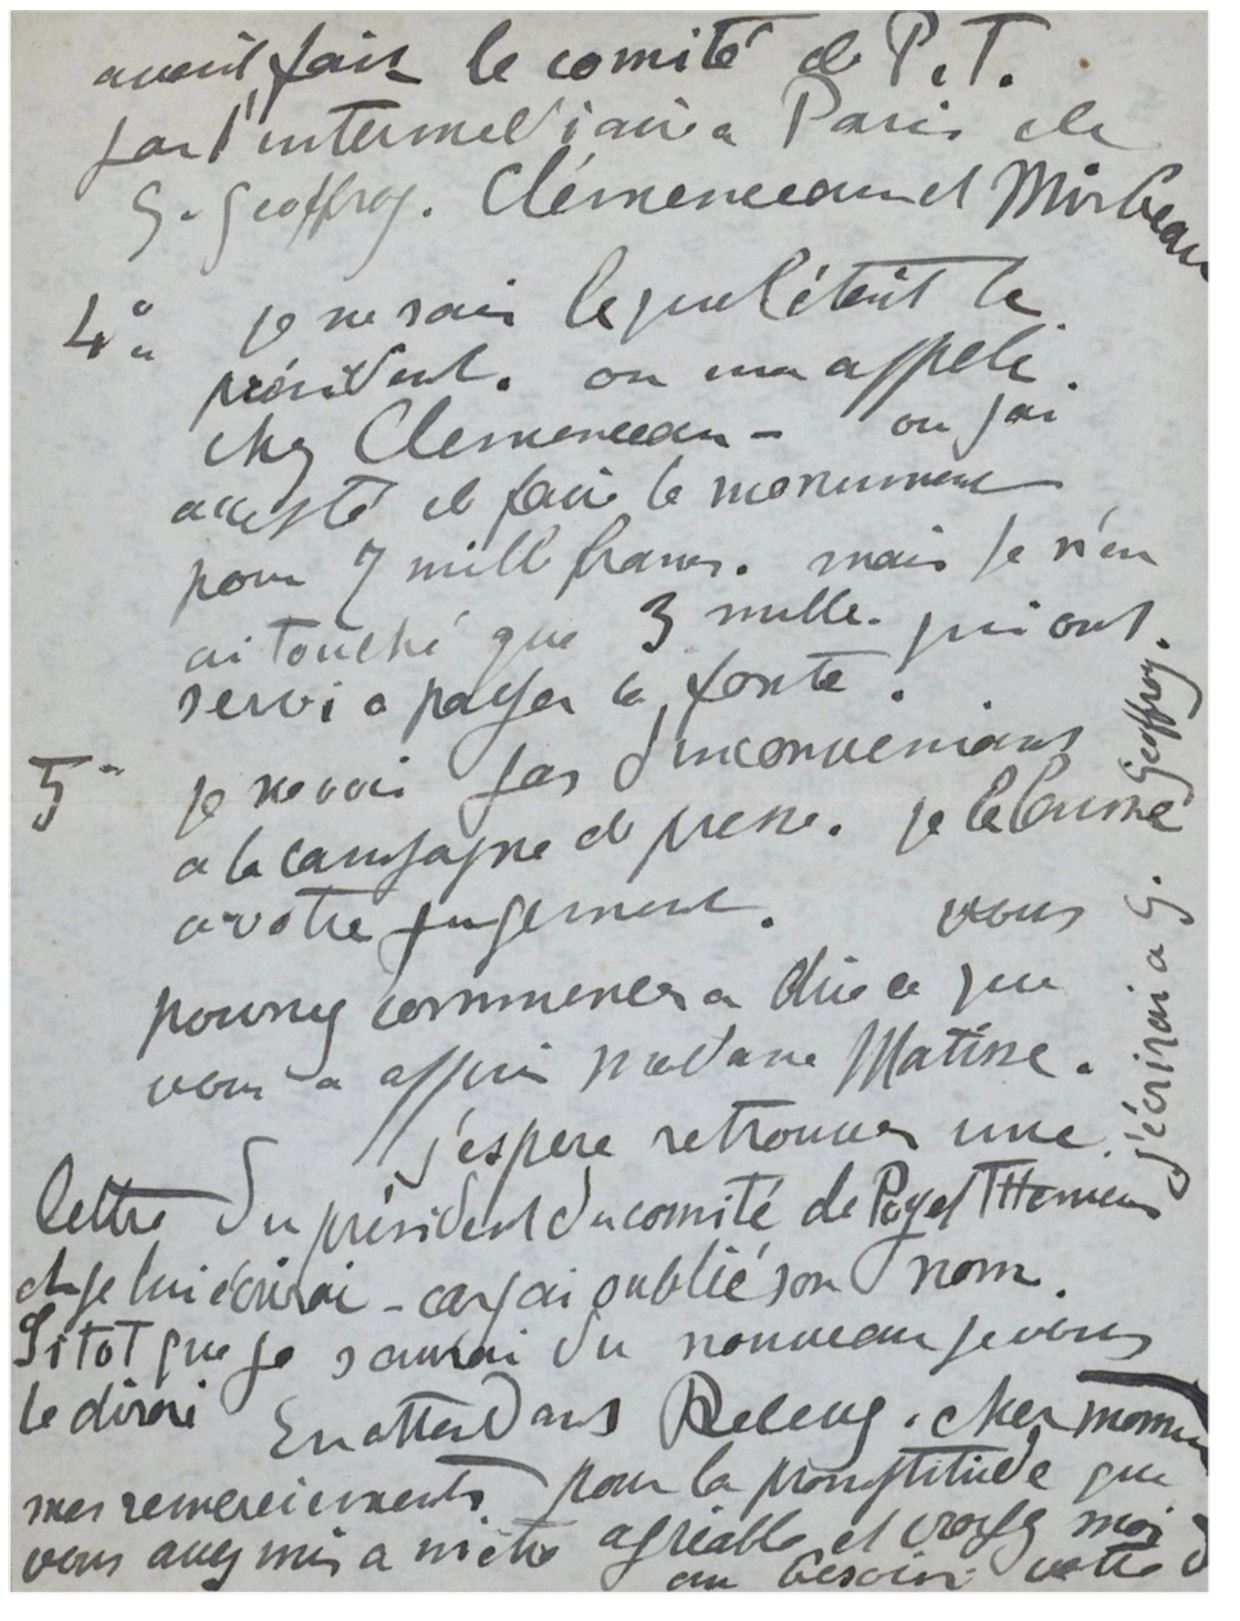 avait fait le comité de P. T.
par l'intermediaire a Paris de
G. Geoffroy. Clémenceau et Mirbeau
4° je ne sais lequel était le
président. on m'a appelé.
chez Clemenceau - ou j'ai
accepté de faire le monument
pour 7 mille francs. mais je n'en
ai touché que 3 mille. qui ont
servi a payer la fonte.
5° je ne vois pas d'inconvenients
a la campagne de presse. je le laisse
a votre jugement. vous
pouvez commencer a dire ce que
vous a appris madame Matisse.
j'espere retrouver une
lettre du président du comité de Puget Theniers
et je lui écrirai - car j'ai oublié son nom.
Sitot que je saurai du nouveau je vous
le dirai En attendant Recevez. cher
mes remerciements pour la promptitude que
vous avez mis a m'etre agréable et croyez moi
au besoin votre
j'écrirai a G. Geoffroy.